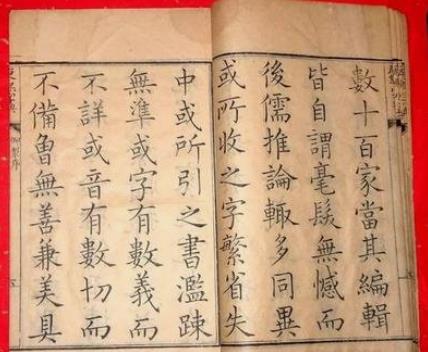 數十百家當其編輯
皆自謂毫髮無憾而
後儒推論輒多同異
或所收之字繁省失
中或所引之書濫踈
無準或字有數義而
不詳或音有數切而
不備曾無善兼美具